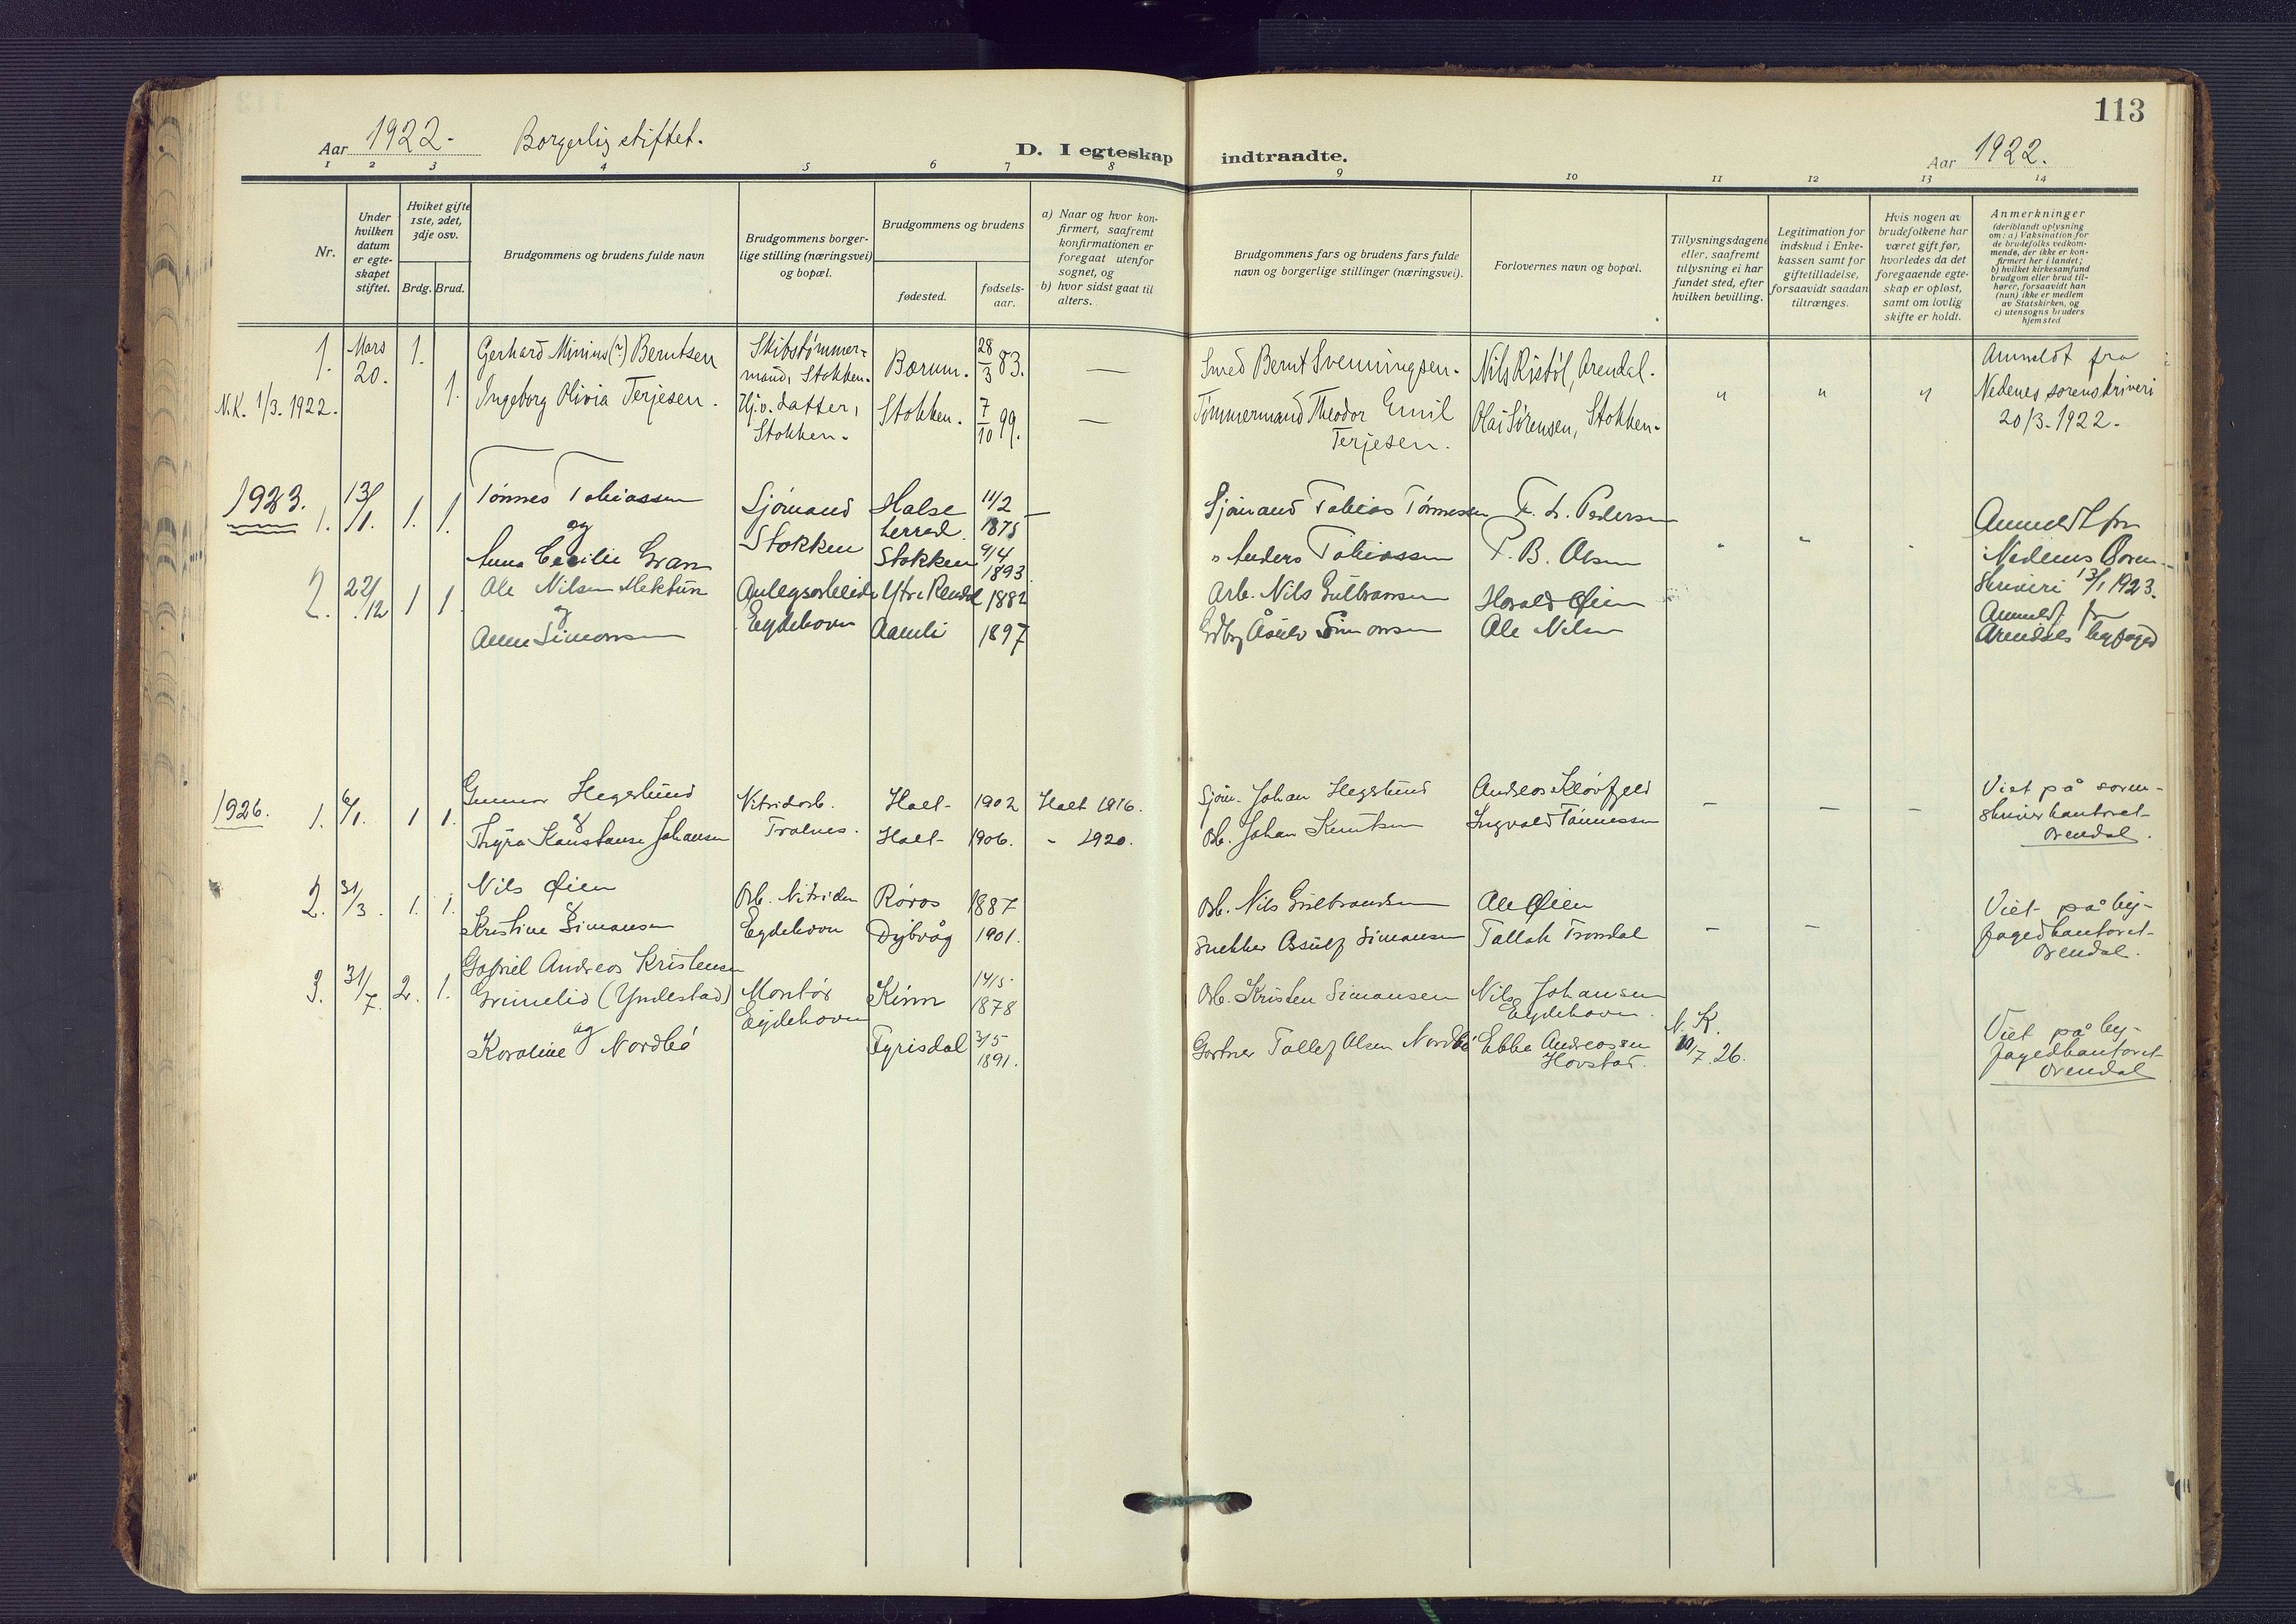 113
Aar 1922. Borgerlig stiftet. D. I egteskap indtraadte. Aar 1922.
1 2 3 4 5 6 7 8 9 10 11 12 13 14
Nr.
Under hvilken datum er egteskapet stiftet.
Hviket gifte 1ste, 2det, 3dje osv.
Brdg. Brud.
Brudgommens og brudens fulde navn
Brudgommens borgerlige stilling (næringsvei) og bopæl.
Brudgommens og brudens
fødested.
fødselsaar.
a) Naar og hvor konfirmert, saafremt konfirmationen er foregaat utenfor sognet, og
b) hvor sidst gaat til alters.
Brudgommens fars og brudens fars fulde navn og borgerlige stillinger (næringsvei).
Forlovernes navn og bopæl.
Tillysningsdagene eller, saafremt tillysning ei har fundet sted, efter hvilken bevilling.
Legitimation for indskud i Enkekassen samt for giftetilladelse, forsaavidt saadan tiltrænges.
Hvis nogen av brudefolkene har været gift før, hvorledes da det foregaaende egteskap er opløst, samt om lovlig skifte er holdt.
Anmerkninger (deriblandt oplysning om: a) Vaksination for de brudefolks vedkommende, der ikke er konfirmert her i landet; b) hvilket kirkesamfund brudgom eller brud tilhører, forsaavidt han (hun) ikke er medlem av Statskirken, og c) utensogns bruders hjemsted
1. Mars 20. 1. 1.
N.K. 1/3. 1922.
Gerhard Minius (?) Berntsen
Ingeborg Olivia Terjesen.
Skibstømmermand, Stokken.
Hj.v. datter, Stokken.
Bærum. 28/3 83. —
Stokken. 7/10 99. —
Smed Bernt Svenningsen.
Tømmermand Theodor Emil Terjesen.
Nils Ristøl, Arendal.
Olai Sørensen, Stokken.
" " "
Anmeldt fra Nedenes sorenskriveri 20/3-1922.
1923.
1. 13/1. 1. 1.
Tønnes Tobiassen
og
Anna Cecilie Gran
Sjømand Stokken
Halse herred 11/2 1875 —
Stokken 9/4 1893.
Sjømand Tobias Tønnessen
" Anders Tobiassen
F. L. Pedersen
P. B. Olsen
Anmeldt fra Nedenes Sorenskriveri 13/1 1923.
2. 22/12 1 1.
Ole Nilsen Mektun
og
Anne Simonsen
Anlegsarbeider Eydehavn
Ytre Rendal 1882
Aamli 1897
Arb. Nils Gulbransen
Grdbr Åsulv Simonsen
Harald Øien
Ole Nilsen
Anmeldt fra Arendals byfoged
1926.
1. 6/1. 1 1.
Gunnar Hegglund
&
Thyra Konstanse Johansen
Nitridarb. Tralnes.
Holt 1902 Holt 1916.
Holt 1906. " 1920.
Sjøm. Johan Hegglund
Arb. Johan Knutsen
Andreas Kløvfjeld
Ingvald Tønnessen
— — —
Viet på sorenskriverkontoret Arendal.
2. 31/3. 1. 1.
Nils Øien
&
Kristine Simonsen
Arb. Nitriden Eydehavn
Røros 1887
Dybvåg 1901.
Arb. Nils Gulbrandsen
Snekker Assulf Simonsen
Ole Øien
Tallak Tromdal
— —
Viet på byfogedkontoret Arendal.
3. 31/7. 2. 1.
Gabriel Andreas Kristensen Grimelid (Yndestad)
og
Karoline Nordbø
Montør Eydehavn
Kinn 14/5 1878
Fyrisdal 3/5 1891.
Arb. Kristen Simonsen
Gartner Tallef Olsen Nordbø
Nils Johansen Eydehavn.
Ebbe Andreassen Hovstad.
N. K. 10/7. 26.
Viet på byfogedkontoret Arendal